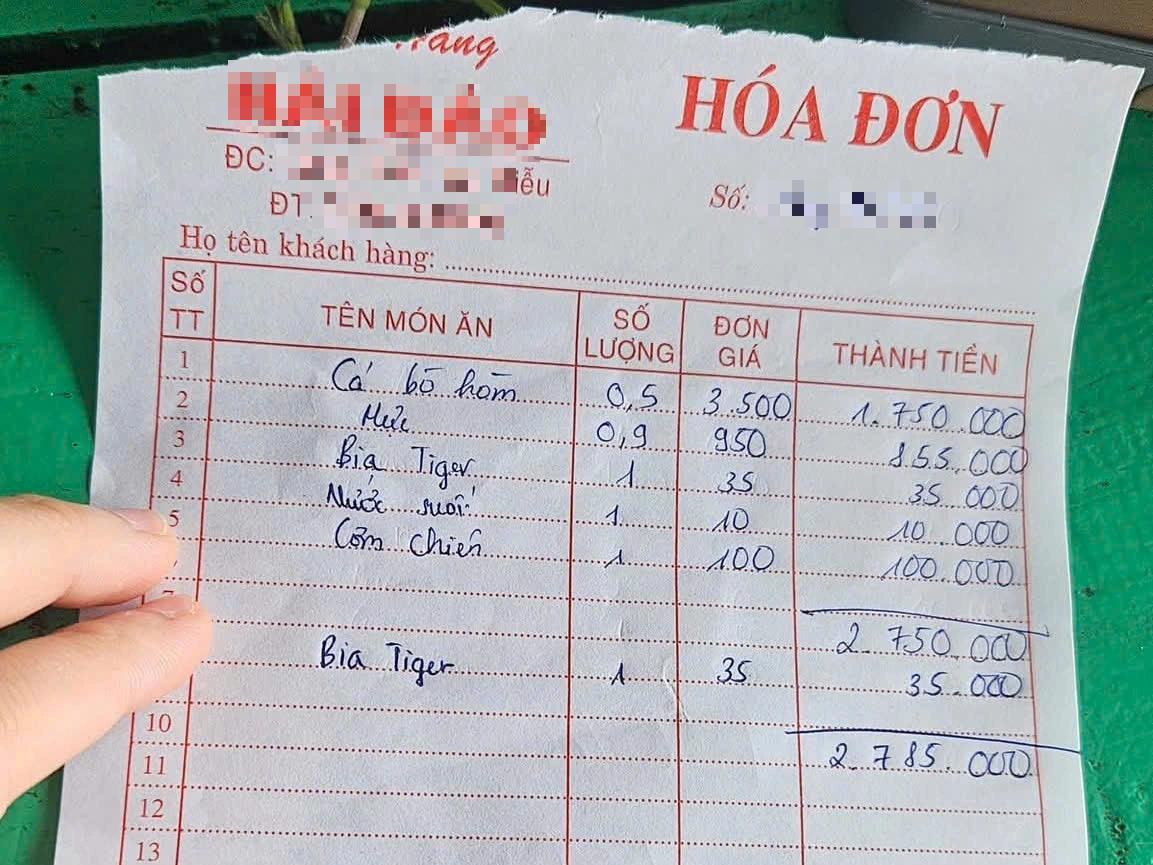 HÓA ĐƠN
ĐC:
ĐT:
Số:
Họ tên khách hàng:
Số TT TÊN MÓN ĂN SỐ LƯỢNG ĐƠN GIÁ THÀNH TIỀN
1 Cá bò hòm 0,5 3.500 1.750.000
2 Mực 0,9 950 855.000
3 Bia Tiger 1 35 35.000
4 Nước suối 1 10 10.000
5 Cơm chiên 1 100 100.000
2.750.000
Bia Tiger 1 35 35.000
10 2.785.000
11
12
13